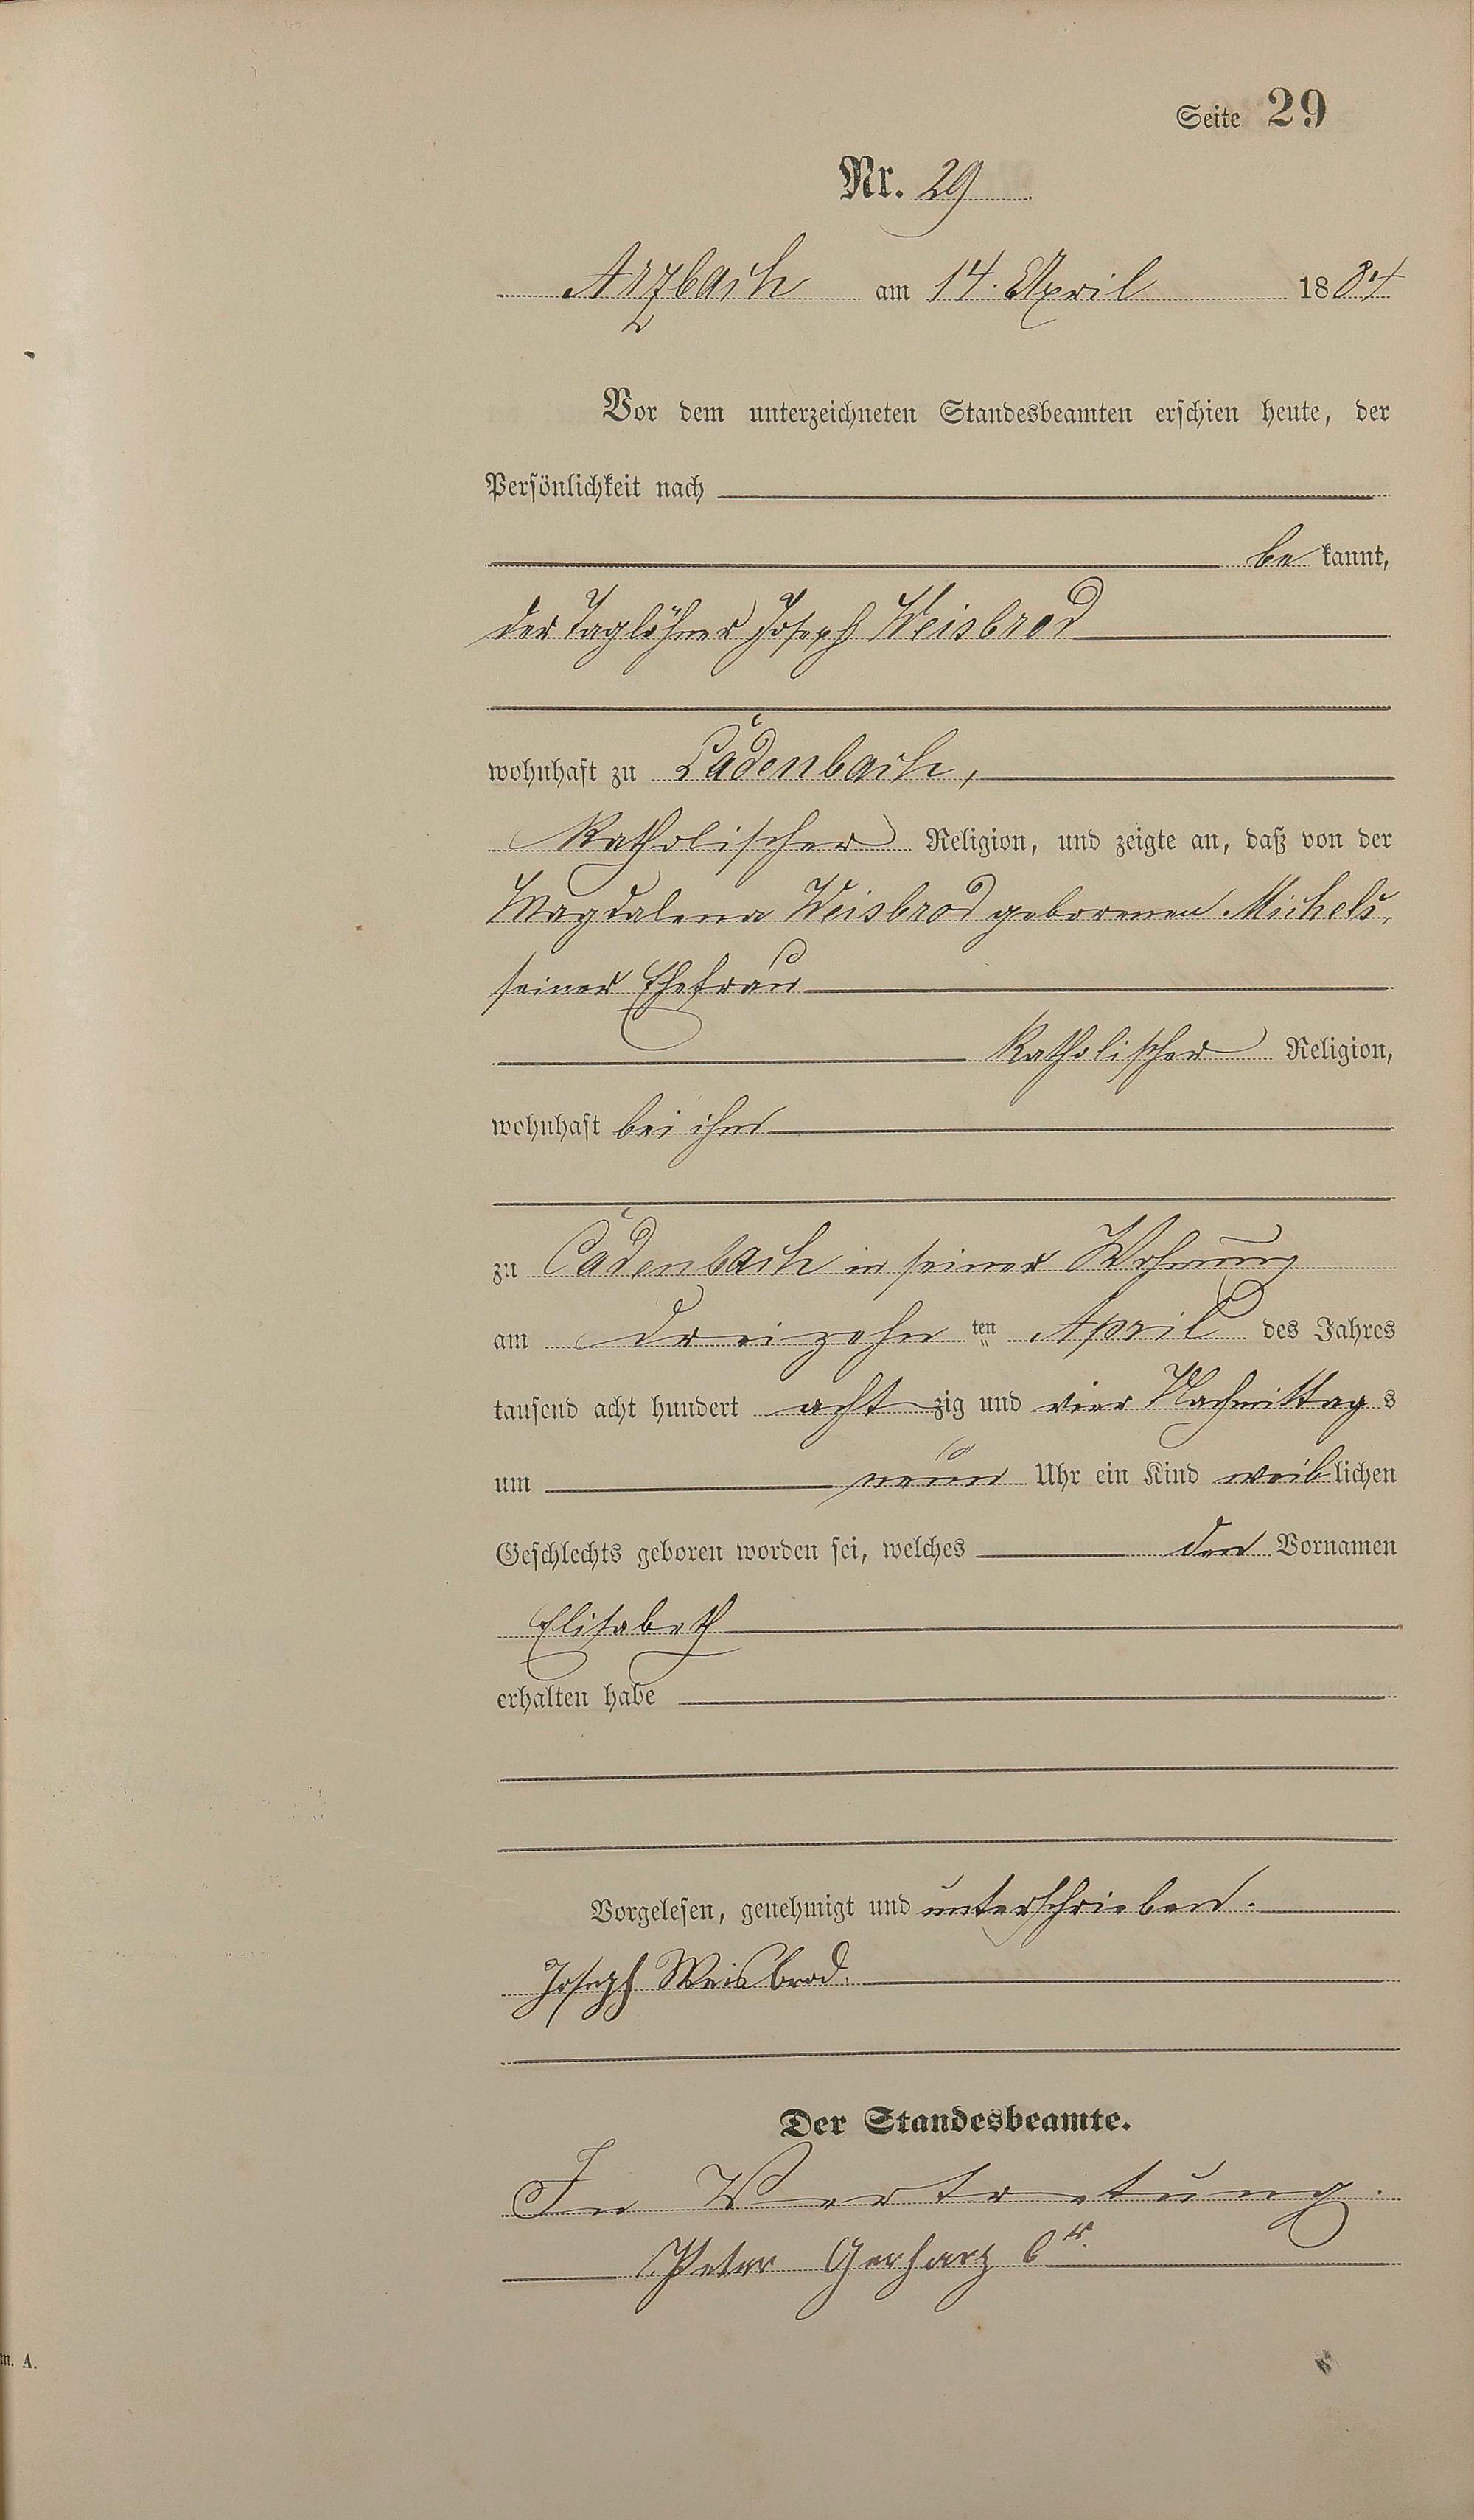 Seite 29
Nr. 29
Arzbach am 14. April 1884
Vor dem unterzeichneten Standesbeamten erschien heute, der
Persönlichkeit nach
be kannt,
der Taglöhner Joseph Weisbrod
wohnhaft zu Cadenbach,
Katholischer Religion, und zeigte an, daß von der
Magdalena Weisbrod geborenen Michels,
seiner Ehefrau
Katholischer Religion,
wohnhaft bei ihm
zu Cadenbach in seiner Wohnung
am dreizehn ten April des Jahres
tausend acht hundert acht zig und vier Nachmittag s
um neun Uhr ein Kind weib lichen
Geschlechts geboren worden sei, welches den Vornamen
Elisabeth
erhalten habe
Vorgelesen, genehmigt und unterschrieben.
Joseph Weisbrod.
Der Standesbeamte.
In Vertretung.
Peter Gerharz 6r.
m. A.